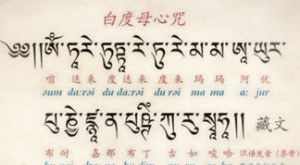 白度母心咒
༄༅།།ཨོཾ་ཏཱ་རེ་ཏུཏྟཱ་རེ་ཏུ་རེ་མ་མ་ཨཱ་ཡུར་
嗡 达来 度达来 度来 玛玛 阿优
da:rei du da:rei du rei ma ma a: jur
པུ་ཎྱེ་ཛྙཱ་ན་པུཥྚིཾ་ཀུ་རུ་སྭཱ་ཧཱ།། 藏文
布 那 布 古如 唆哈